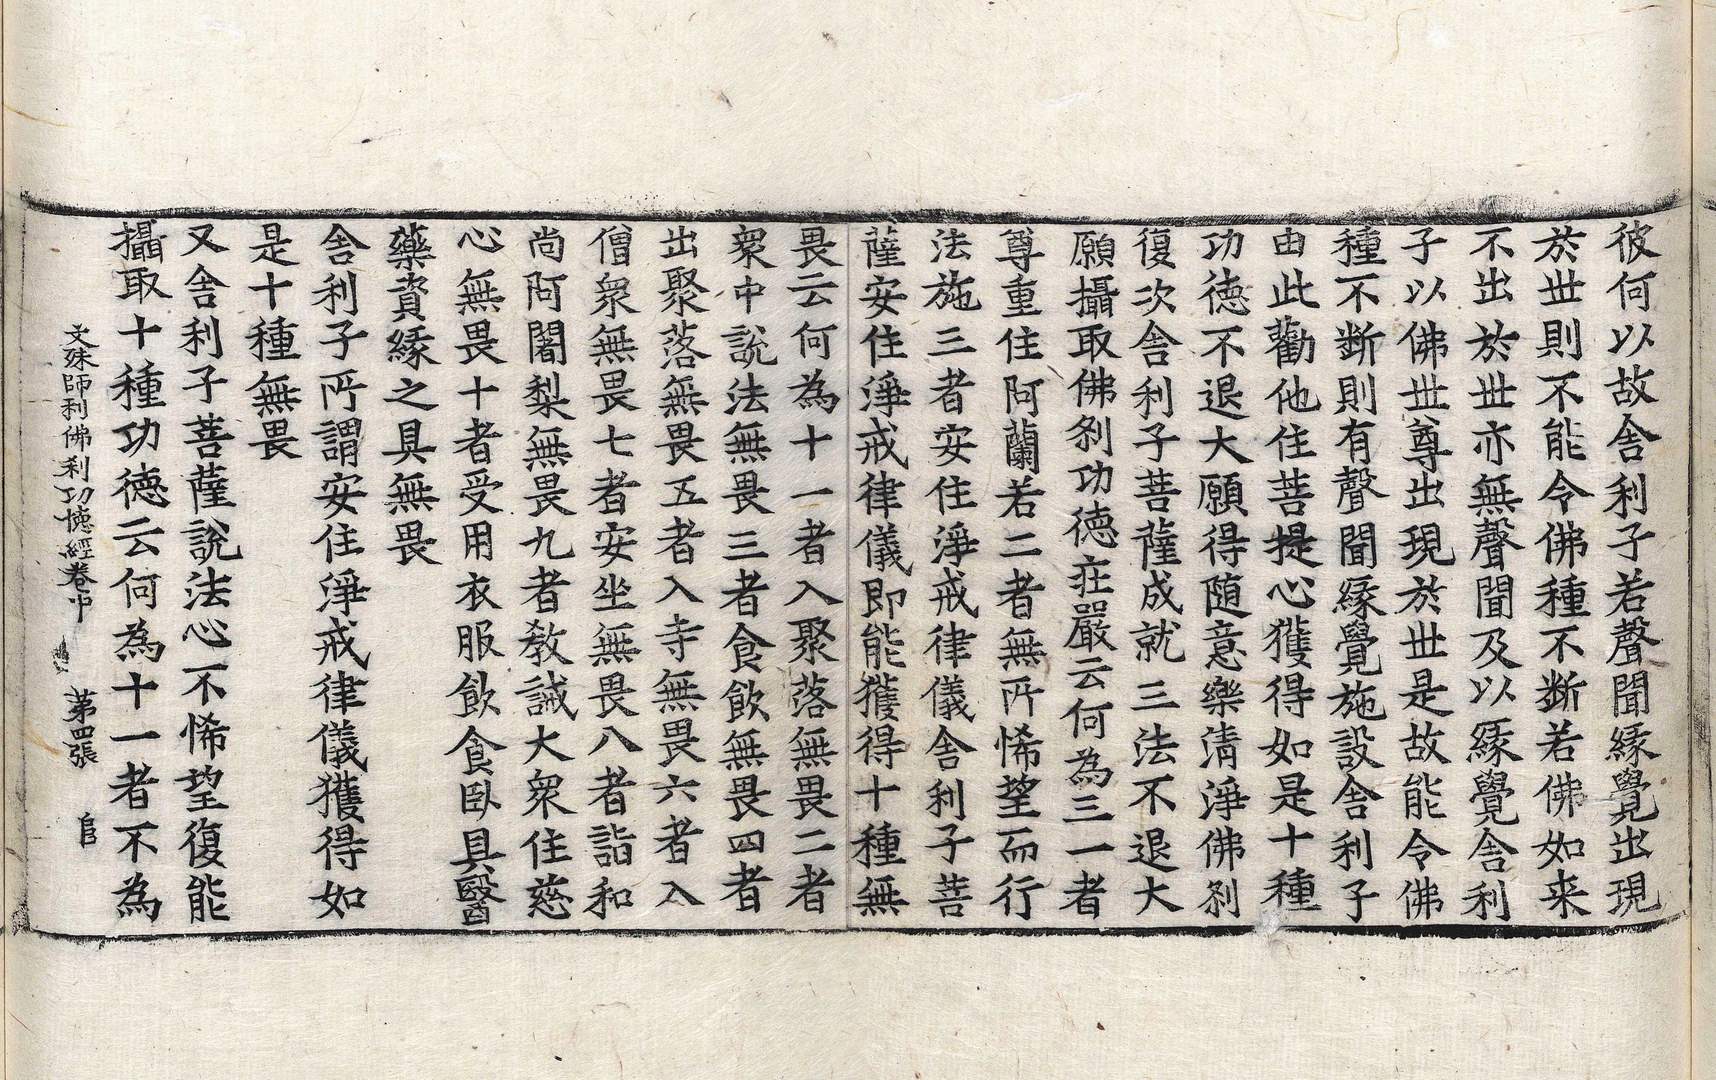 彼何以故舍利子若聲聞緣覺出現
於世則不能令佛種不断若佛如来
不出於世亦無聲聞及以緣覺舍利
子以佛世尊出現於世是故能令佛
種不断則有聲聞緣覺施設舍利子
由此勸他住菩提心獲得如是十種
功德不退大願得随意樂清淨佛刹
復次舍利子菩薩成就三法不退大
願攝取佛刹功德莊嚴云何為三一者
尊重住阿蘭若二者無所悕望而行
法施三者安住淨戒律儀舍利子菩
薩安住淨戒律儀即能獲得十種無
畏云何為十一者入聚落無畏二者
衆中說法無畏三者食飲無畏四者
出聚落無畏五者入寺無畏六者入
僧衆無畏七者安坐無畏八者詣和
尚阿闍梨無畏九者教誡大衆住慈
心無畏十者受用衣服飲食臥具醫
藥資緣之具無畏
舍利子所謂安住淨戒律儀獲得如
是十種無畏
又舍利子菩薩說法心不悕望復能
攝取十種功德云何為十一者不為
文殊師利佛刹功德經卷中 第四張 官